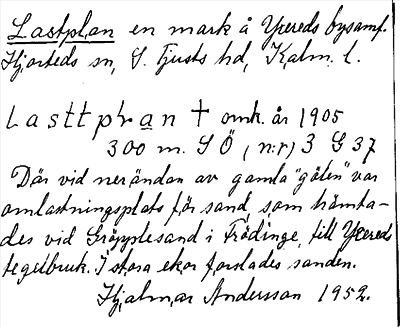 Lastplan en mark å Yxereds bysamf.
Hjorteds sn, S. Tjusts hd, Kalm. l.
Lasttplan † omk. år 1905
300 m. SÖ (n:r) 3 G 37
Där vid nerändan av gamla "gölen" var
omlastningsplats för sand, som hämta-
des vid Gröpplesand i Frödinge, till Yxereds
tegelbruk. I stora ekor forslades sanden.
Hjalmar Andersson 1952.